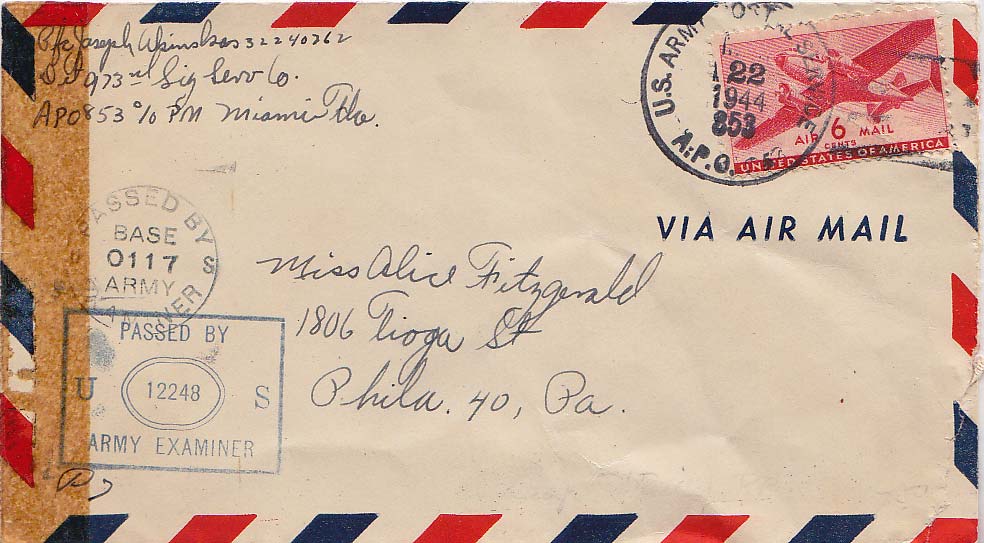 Pfc Joseph 32240262
973rd Sig Serv Co.
APO 853 c/o PM Miami Fla.
U.S. ARMY POSTAL SERVICE
22
1944
853
A.P.O.
AIR 6 MAIL
CENTS
UNITED STATES OF AMERICA
VIA AIR MAIL
PASSED BY
BASE
0117 S
ARMY
Miss Alice Fitzgerald
1806 Tioga St
Phila. 40, Pa.
PASSED BY
U 12248 S
ARMY EXAMINER